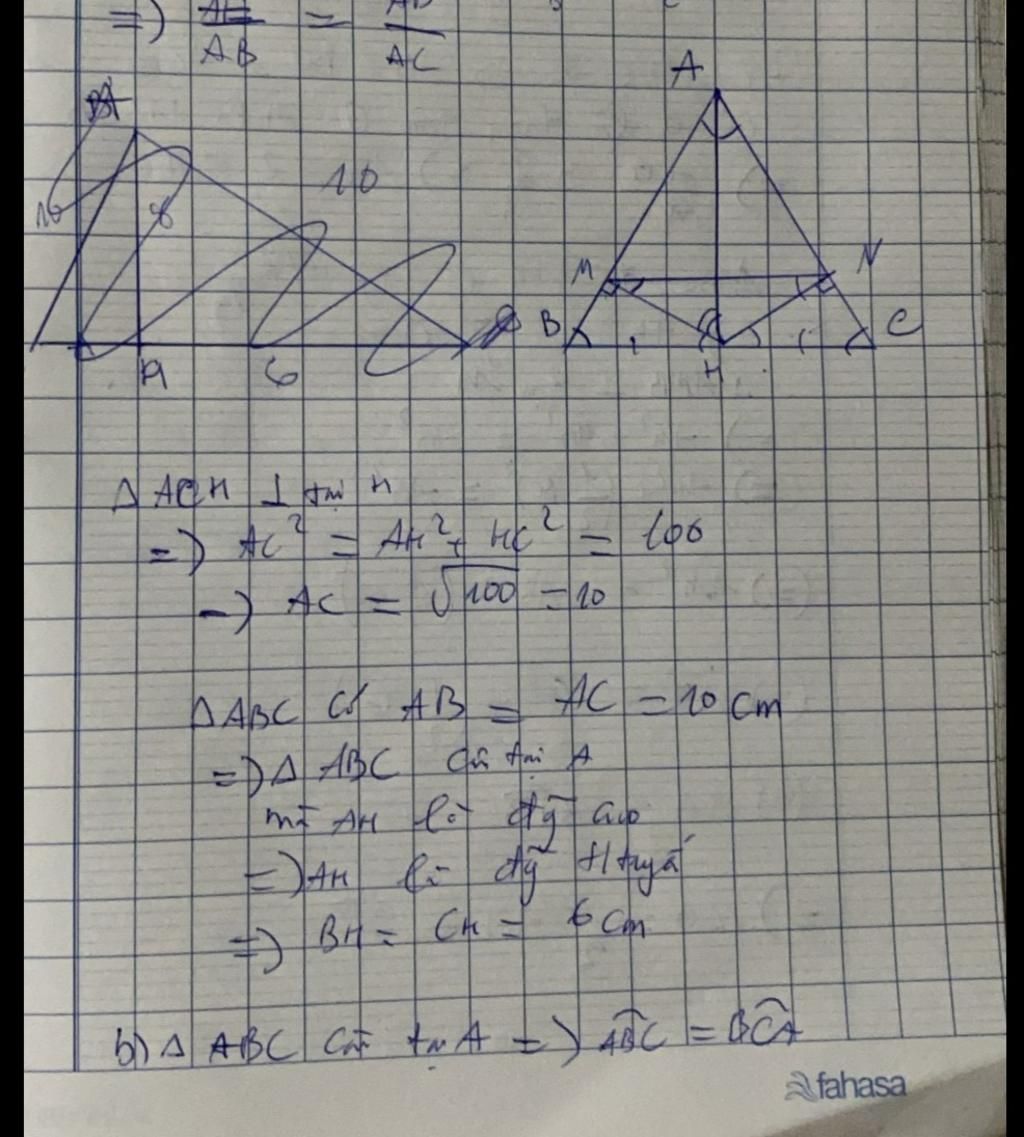 => AH/AB = AD/AC
A
10
8
10
H
6
A
M
N
B
C
H
Δ ACH ⊥ tại H
=> AC² = AH² + HC² = 100
=> AC = √100 = 10
ΔABC có AB = AC = 10 cm
=> Δ ABC cân tại A
mà AH là đg cao
=> AH là đg tuyến
=> BH = CH = 6 cm
b) Δ ABC cân tại A => ABC = BCA
fahasa